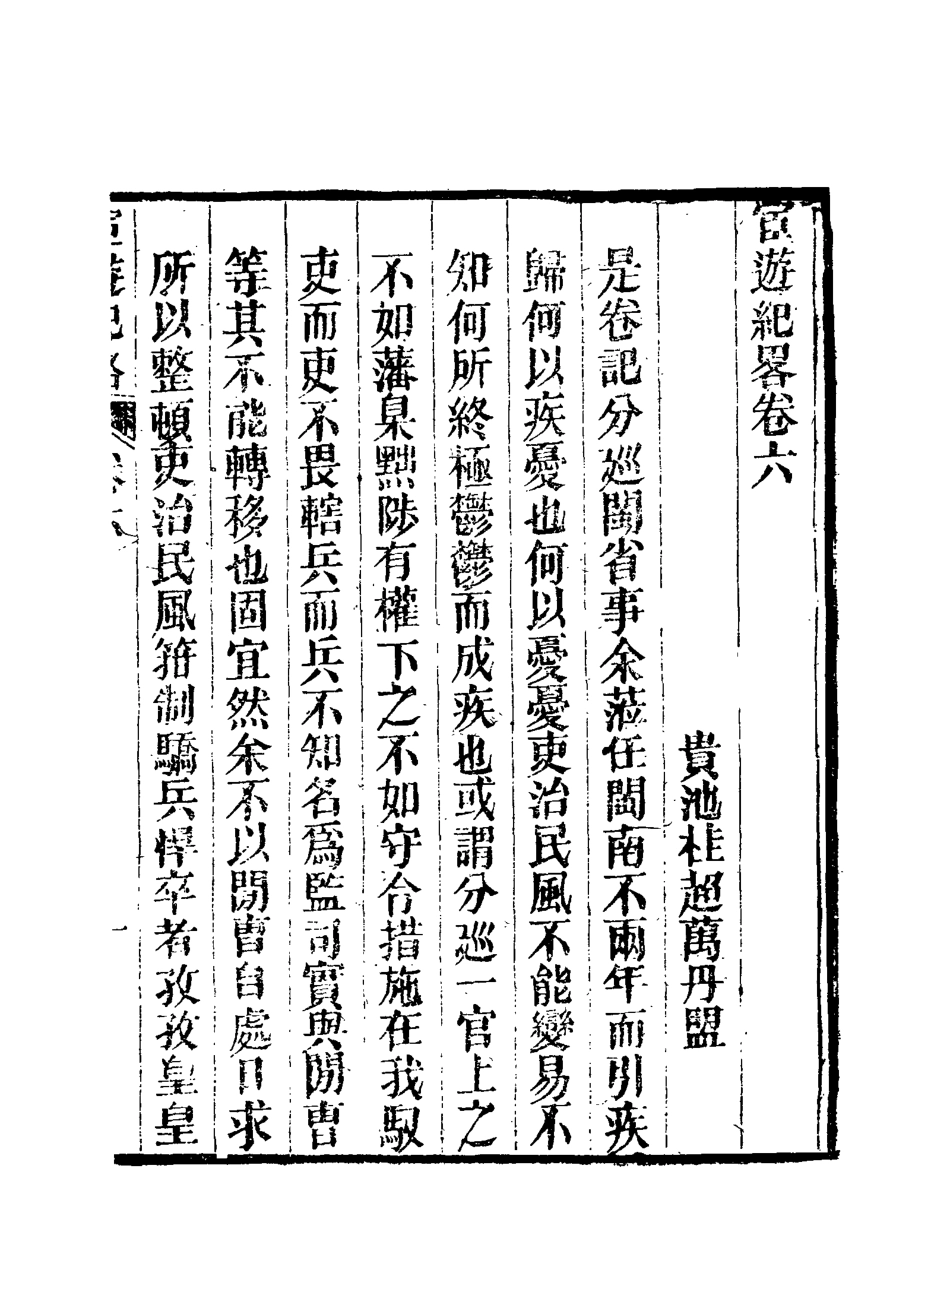 宦遊紀畧卷六
貴池桂超萬丹盟
是卷記分廵閩省事余蒞任閩南不兩年而引疾
歸何以疾憂也何以憂憂吏治民風不能變易不
知何所終極鬱鬱而成疾也或謂分廵一官上之
不如藩臬黜陟有權下之不如守令措施在我馭
吏而吏不畏轄兵而兵不知名為監司實與閒曹
等其不能轉移也固宜然余不以閒曹自處日求
所以整頓吏治民風箝制驕兵悍卒者孜孜皇皇
宦遊紀畧 卷六 一